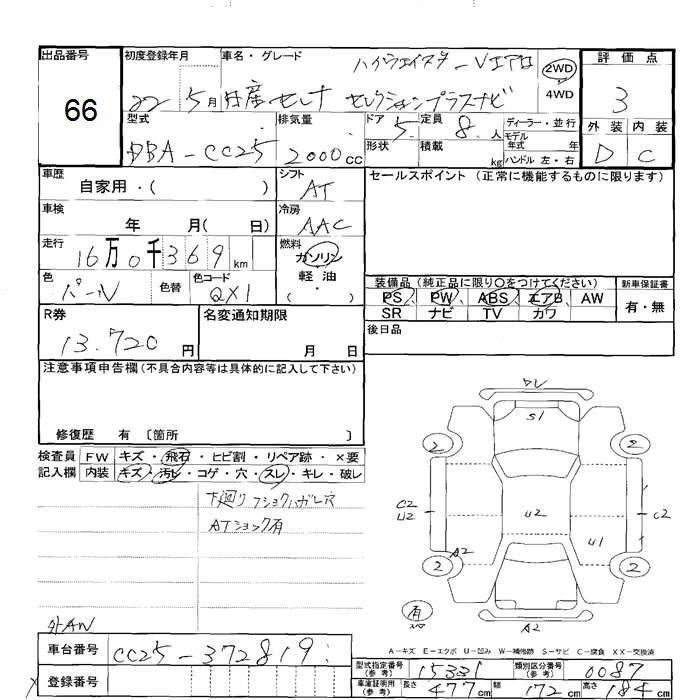 出品番号
66
初度登録年月
22 5月
車名・グレード
ハイウェイスター Vエアロ
日産セレナ セレクションプラスナビ
2WD
4WD
評価点
3
外装 内装
D C
型式
DBA-CC25
排気量
2000cc
ドア 5
形状
定員 8人
積載 kg
ディーラー・並行
モデル年式 年
ハンドル 左・右
車歴
自家用・( )
シフト
AT
車検
年 月( 日)
冷房
AAC
走行
16万0千369km
燃料
ガソリン
軽・油
( ・ )
色
パール
色替
色コード
QX1
セールスポイント (正常に機能するものに限ります)
R券
13.720円
名変通知期限
月 日
装備品 (純正品に限り〇をつけてください)
PS PW ABS エアB AW
SR ナビ TV カワ
新車保証書
有・無
後日品
注意事項申告欄(不具合内容等は具体的に記入して下さい)
修復歴 有 〔箇所 〕
検査員記入欄
FW キズ・飛石・ヒビ割・リペア跡・×要
内装 キズ・汚レ・コゲ・穴・スレ・キレ・破レ
下廻り
ハガレ穴
ATショック有
外AW
S1
2
2
C2
U2
U2
C2
U1
A2
2
2
有
A2
A-キズ E-エクボ U-凹み W-補修跡 S-サビ C-腐食 XX-交換済
車台番号
CC25-372819
登録番号
型式指定番号(参考)
15331
類別区分番号(参考)
0087
車庫証明用(参考)
長さ 477cm
幅 172cm
高さ 184cm